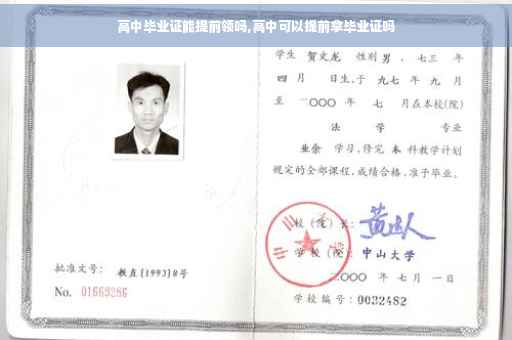 高中毕业证能提前领吗,高中可以提前拿毕业证吗
学生 贺文龙 性别 男 、七三 年
四 月 日生,于 九七 年 九 月
至 二〇〇〇 年 七 月在本校(院)
法 学 专业
业余 学习,修完 本 科教学计划
规定的全部课程,成绩合格,准予毕业。
校 (院) 长:
学 校 (院): 中山大学
二〇〇〇 年 七 月 一 日
学校编号: 0032482
批准文号: 教直[1993]8号
No. 01669286